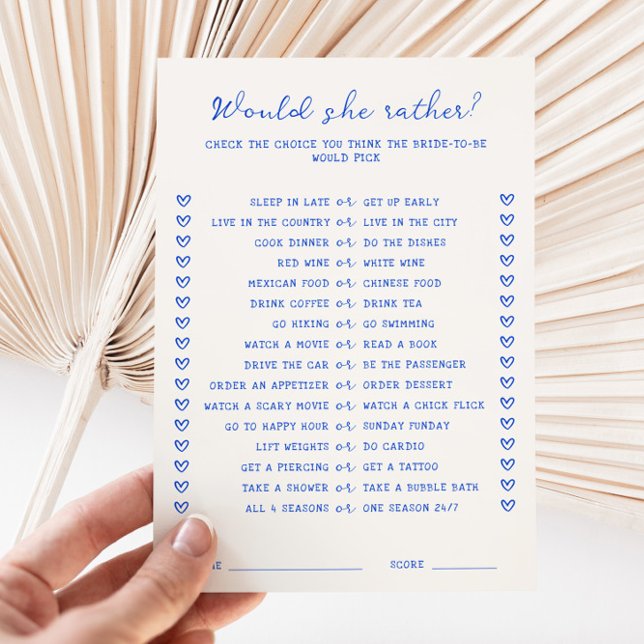 Would she rather?
CHECK THE CHOICE YOU THINK THE BRIDE-TO-BE
WOULD PICK
SLEEP IN LATE or GET UP EARLY
LIVE IN THE COUNTRY or LIVE IN THE CITY
COOK DINNER or DO THE DISHES
RED WINE or WHITE WINE
MEXICAN FOOD or CHINESE FOOD
DRINK COFFEE or DRINK TEA
GO HIKING or GO SWIMMING
WATCH A MOVIE or READ A BOOK
DRIVE THE CAR or BE THE PASSENGER
ORDER AN APPETIZER or ORDER DESSERT
WATCH A SCARY MOVIE or WATCH A CHICK FLICK
GO TO HAPPY HOUR or SUNDAY FUNDAY
LIFT WEIGHTS or DO CARDIO
GET A PIERCING or GET A TATTOO
TAKE A SHOWER or TAKE A BUBBLE BATH
ALL 4 SEASONS or ONE SEASON 24/7
SCORE